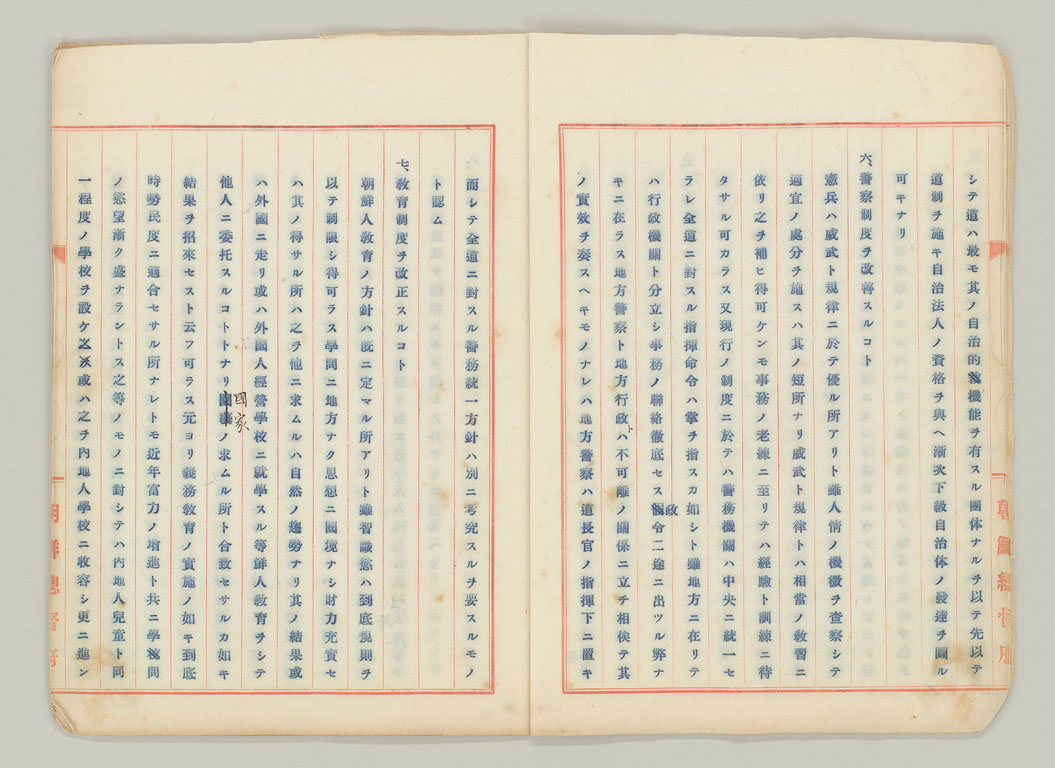 シテ道ハ最モ其ノ自治的機能ヲ有スル團体ナルヲ以テ先以テ
道制ヲ施キ自治法人ノ資格ヲ與ヘ漸次下級自治体ノ發達ヲ圖ル
可キナリ
六、警察制度ヲ改善スルコト
憲兵ハ威武ト規律ニ於テ優ル所アリト雖人情ノ機微ヲ査察シテ
適宜ノ處分ヲ施スハ其ノ短所ナリ威武ト規律トハ相當ノ敎習ニ
依リ之ヲ補ヒ得可ケンモ事務ノ老練ニ至リテハ經驗ト訓練ニ待
タサル可カラス又現行ノ制度ニ於テハ警務機關ハ中央ニ統一セ
ラレ全道ニ對スル指揮命令ハ掌ヲ指スカ如シト雖地方ニ在リテ
ハ行政機關ト分立シ事務ノ聯絡徹底セス政令二途ニ出ツル弊ナ
キニ在ラス地方警察ト地方行政トハ不可離ノ關係ニ立チ相俟テ其
ノ實效ヲ奏スヘキモノナレハ地方警察ハ道長官ノ指揮下ニ置キ
朝鮮總督府
而シテ全道ニ對スル警務統一方針ハ別ニ考究スルヲ要スルモノ
ト認ム
七、敎育制度ヲ改正スルコト
朝鮮人敎育ノ方針ハ既ニ定マル所アリト雖智識慾ハ到底規則ヲ
以テ制限シ得可ラス學問ニ地方ナク思想ニ國境ナシ財力充實セ
ハ其ノ得サル所ハ之ヲ他ニ求ムルハ自然ノ趨勢ナリ其ノ結果或
ハ外國ニ走リ或ハ外國人經營學校ニ就學スル等鮮人敎育ヲシテ
他人ニ委托スルコトトナリ國家ノ求ムル所ト合致セサルカ如キ
結果ヲ招來セスト云フ可ラス元ヨリ義務敎育ノ實施ノ如キ到底
時勢民度ニ適合セサル所ナレトモ近年富力ノ增進ト共ニ學校問
ノ慾望漸ク盛ナラントス之等ノモノニ對シテハ内地人兒童ト同
一程度ノ學校ヲ設ケ或ハ之ヲ内地人學校ニ收容シ更ニ進ン
朝鮮總督府